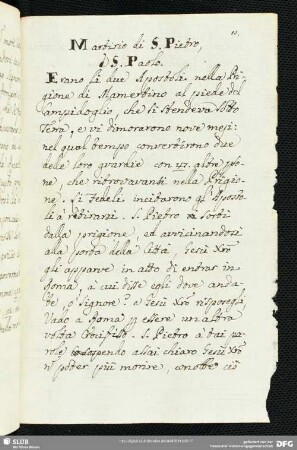 Martirio di S. Pietro,
S. Paolo.
Erano li due Apostoli nella Pri-
gione di Mamertino al piede del
Campidoglio, che si stendeva sotto
Terra, e vi dimorarono nove mesi
nel qual tempo convertirono due
delle loro guardie con 47. altre pso-
ne, che ritrovavansi nella Prigio-
ne. Li Fedeli incitarono gl' Aposto-
li à ritirarsi. S. Pietro sortì
dalla prigione, ed avvicinandosi
alla porta della Città, Gesù Xρõ
gli apparve in atto di entrar in
Roma, à cui disse egli dove anda-
te ò Signore? e Gesù Xρõ rispose
Vado à Roma p essere un altra
volta Crocifisso. S. Pietro à tai pa-
role assai chiaro Gesù Xρõ
ñ poter più morire,
SLUB